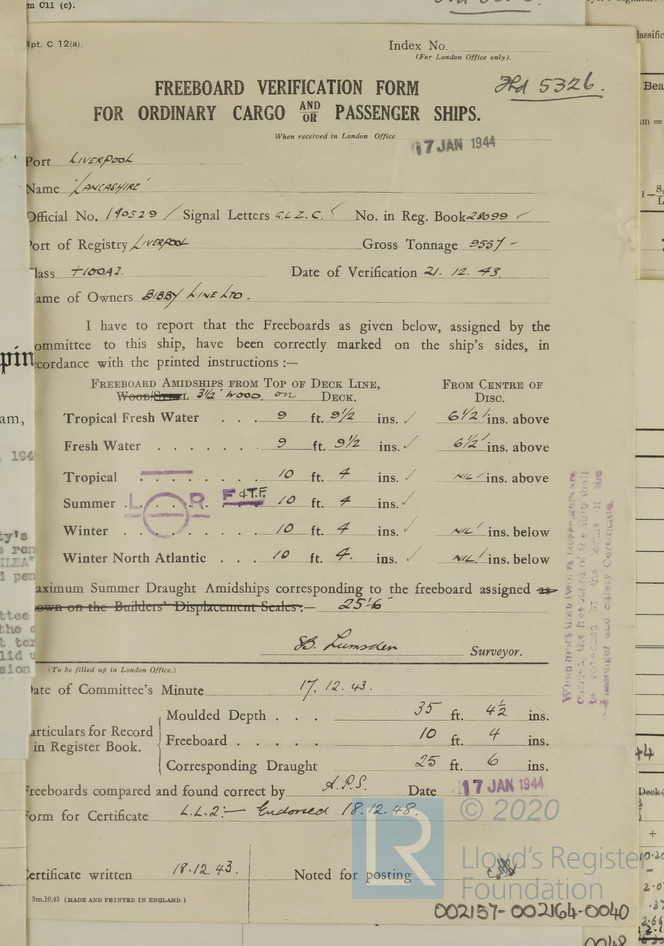 m C11 (c).
Rpt. C 12(a).
Index No.
(For London Office only).
FREEBOARD VERIFICATION FORM
FOR ORDINARY CARGO AND OR PASSENGER SHIPS.
Frd 5326.
When received in London Office
17 JAN 1944
Port LIVERPOOL
Name 'LANCASHIRE'
Official No. 140529 / Signal Letters G.L.Z.C. No. in Reg. Book 28099
Port of Registry LIVERPOOL Gross Tonnage 9557 -
lass +100A1. Date of Verification 21. 12. 43.
ame of Owners BIBBY LINE LTD.
I have to report that the Freeboards as given below, assigned by the
ommittee to this ship, have been correctly marked on the ship's sides, in
ccordance with the printed instructions :—
FREEBOARD AMIDSHIPS FROM TOP OF DECK LINE,
WOOD/STEEL 3½" WOOD, on DECK.
FROM CENTRE OF
DISC.
Tropical Fresh Water . . . 9 ft. 9½ ins. / 6½" ins. above
Fresh Water . . . . . . 9 ft. 9½ ins. / 6½" ins. above
Tropical . . . . . . 10 ft. 4 ins. / NIL ins. above
Summer . . . . L R F & T.F. 10 ft. 4 ins. /
Winter . . . . . . 10 ft. 4 ins. / NIL ins. below
Winter North Atlantic . . . 10 ft. 4. ins. / NIL ins. below
aximum Summer Draught Amidships corresponding to the freeboard assigned as
own on the Builders' Displacement Scales:— 25'6"
B. Lumsden Surveyor.
(To be filled up in London Office.)
Date of Committee's Minute 17. 12. 43.
articulars for Record
in Register Book.
Moulded Depth . . . 35 ft. 4½ ins.
Freeboard . . . . . 10 ft. 4 ins.
Corresponding Draught 25 ft. 6 ins.
Freeboards compared and found correct by A.P.S. Date 17 JAN 1944
Form for Certificate L.L.2:— Endorsed 18.12.48.
ertificate written 18.12 43. Noted for posting
3m,10,43 (MADE AND PRINTED IN ENGLAND.)
© 2020
LR
Lloyd's Register
Foundation
002157-002164-0040